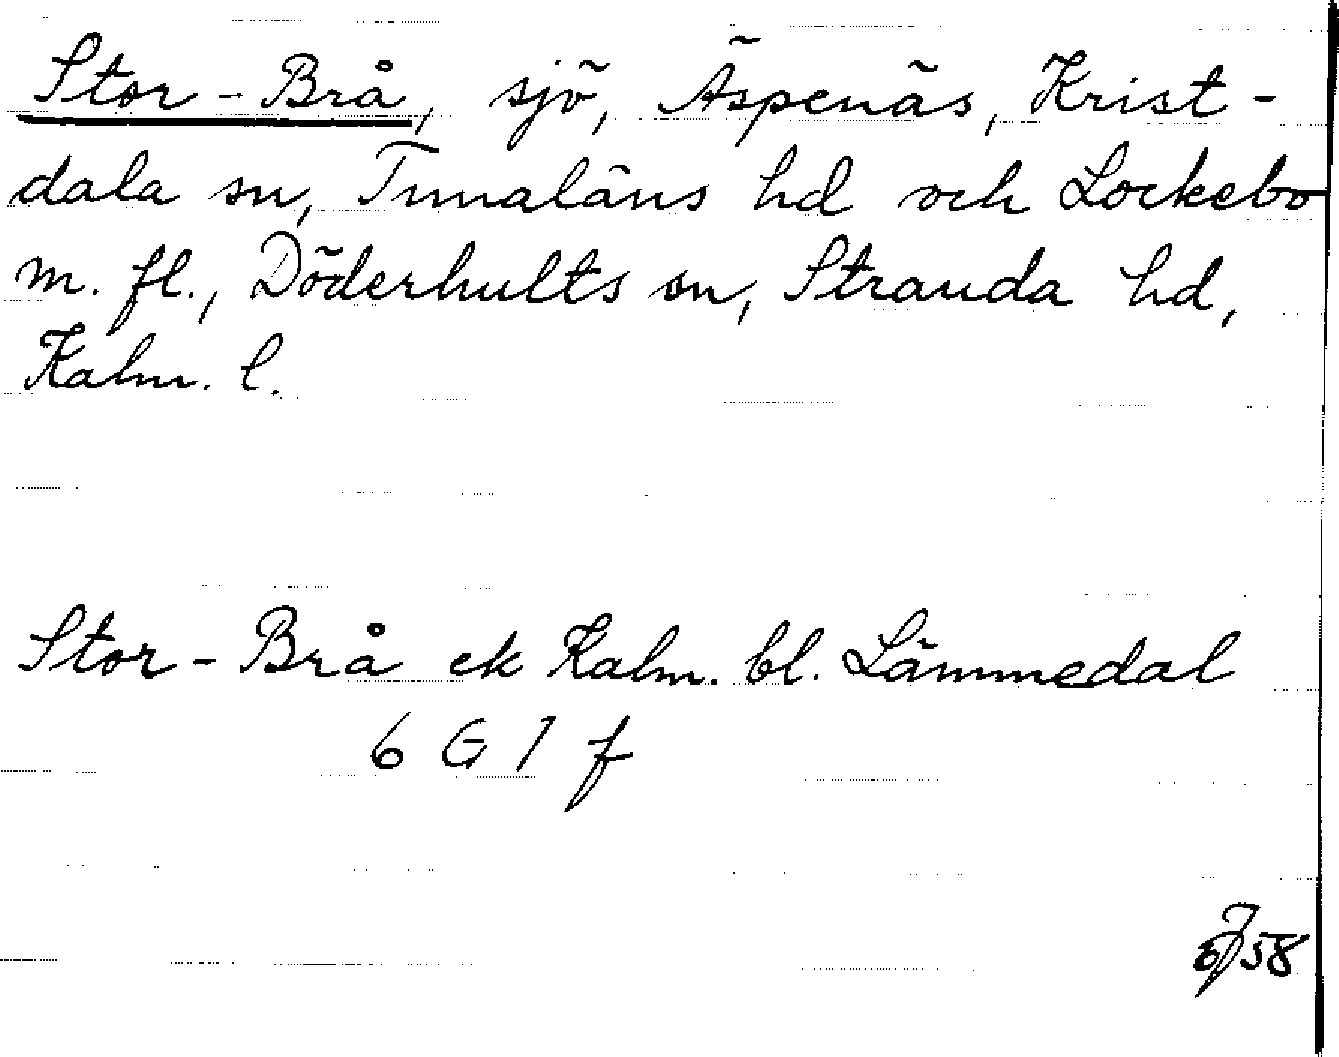 Stor-Brå, sjö, Äspenäs, Krist-
dala sn, Tunaläns hd och Lockebo
m. fl., Döderhults sn, Stranda hd,
Kalm. l.
Stor-Brå ek Kalm. bl. Lämmedal
6 G 1 f
58